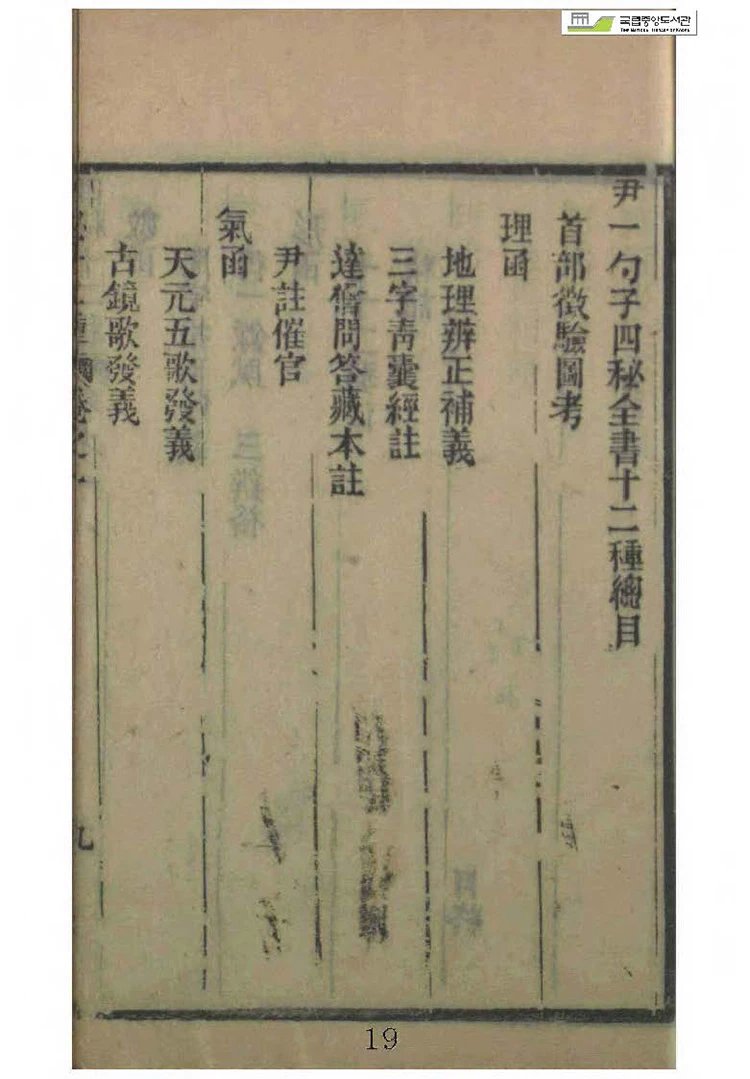 국립중앙도서관
THE NATIONAL LIBRARY OF KOREA
尹一勺子四秘全書十二種總目
首部徵驗圖考
理函
地理辨正補義
三字靑囊經註
達僧問答藏本註
尹註催官
氣函
天元五歌發義
古鏡歌發義
九
19